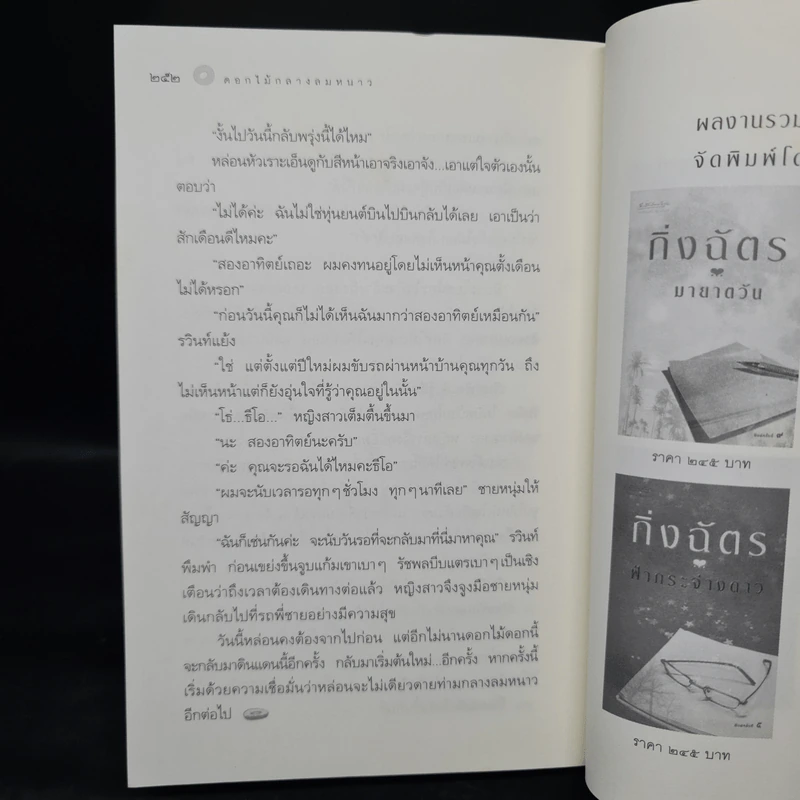 ๒๕๒ ดอกไม้กลางลมหนาว
“งั้นไปวันนี้กลับพรุ่งนี้ได้ไหม”
หล่อนหัวเราะเอ็นดูกับสีหน้าเอาจริงเอาจัง...เอาแต่ใจตัวเองนั้น
ตอบว่า
“ไม่ได้ค่ะ ฉันไม่ใช่หุ่นยนต์บินไปบินกลับได้เลย เอาเป็นว่า
สักเดือนดีไหมคะ”
“สองอาทิตย์เถอะ ผมคงทนอยู่โดยไม่เห็นหน้าคุณตั้งเดือน
ไม่ได้หรอก”
“ก่อนวันนี้คุณก็ไม่ได้เห็นฉันมากว่าสองอาทิตย์เหมือนกัน”
รวินท์แย้ง
“ใช่ แต่ตั้งแต่ปีใหม่ผมขับรถผ่านหน้าบ้านคุณทุกวัน ถึง
ไม่เห็นหน้าแต่ก็ยังอุ่นใจที่รู้ว่าคุณอยู่ในนั้น”
“โธ่...ธีโอ...” หญิงสาวเต็มตื้นขึ้นมา
“นะ สองอาทิตย์นะครับ”
“ค่ะ คุณจะรอฉันได้ไหมคะธีโอ”
“ผมจะนับเวลารอทุกๆ ชั่วโมง ทุกๆ นาทีเลย” ชายหนุ่มให้
สัญญา
“ฉันก็เช่นกันค่ะ จะนับวันรอที่จะกลับมาที่นี่มาหาคุณ” รวินท์
พึมพำ ก่อนเขย่งขึ้นจูบแก้มเขาเบาๆ รัชพลบีบแตรเบาๆ เป็นเชิง
เตือนว่าถึงเวลาต้องเดินทางต่อแล้ว หญิงสาวจึงจูงมือชายหนุ่ม
เดินกลับไปที่รถพี่ชายอย่างมีความสุข
วันนี้หล่อนคงต้องจากไปก่อน แต่อีกไม่นานดอกไม้ดอกนี้
จะกลับมาดินแดนนี้อีกครั้ง กลับมาเริ่มต้นใหม่...อีกครั้ง หากครั้งนี้
เริ่มด้วยความเชื่อมั่นว่าหล่อนจะไม่เดียวดายท่ามกลางลมหนาว
อีกต่อไป
ผลงานรวม
จัดพิมพ์โด
กิ่งฉัตร
มายาตวัน
พิมพ์ครั้งที่ ๙
ราคา ๒๔๕ บาท
กิ่งฉัตร
ฟ้ากระจ่างดาว
พิมพ์ครั้งที่ ๕
ราคา ๒๔๕ บาท